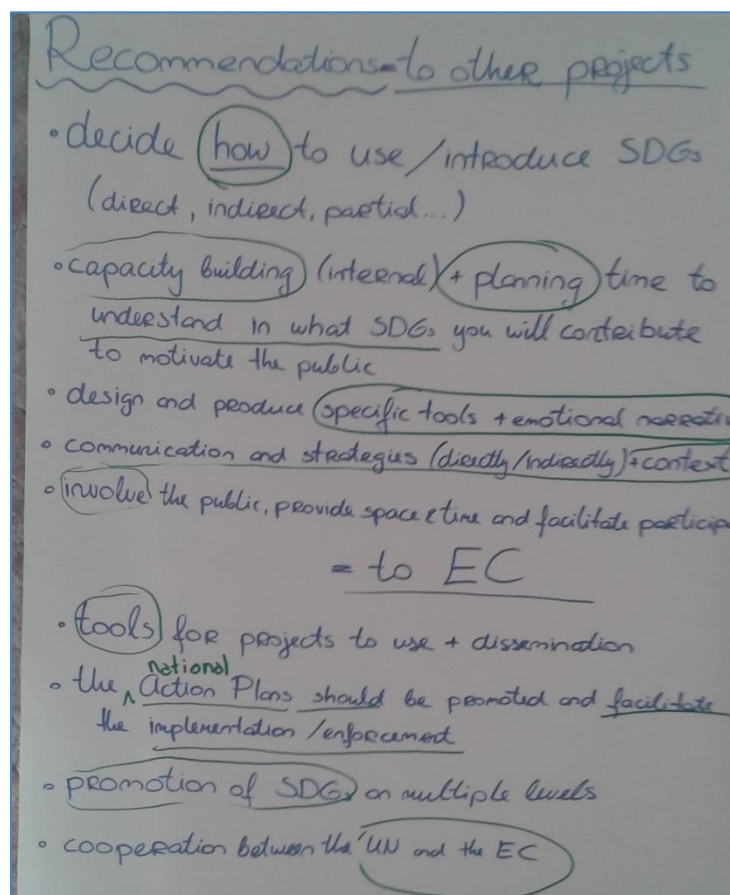 Recommendations - to other projects
• decide how to use / introduce SDGs
(direct, indirect, partial....)
• capacity building (internal) + planning time to
understand in what SDGs you will contribute
to motivate the public
• design and produce specific tools + emotional narrati
• communication and strategies (directly/indirectly) + context
• involve the public, provide space & time and facilitate particip
- to EC
• tools for projects to use + dissemination
• the national Action Plans should be promoted and facilitate
the implementation / enforcement
• promotion of SDGs on multiple levels
• cooperation between the UN and the EC